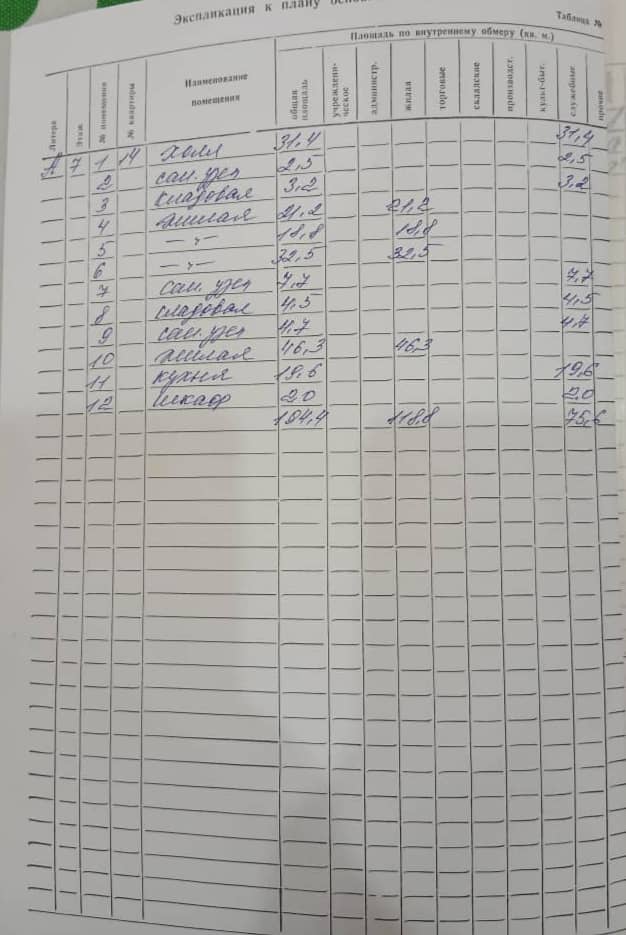 Экспликация к плану
Таблица №
Площадь по внутреннему обмеру (кв. м.)
Литера Этаж № помещения № квартиры Наименование помещения общая площадь учреждени-ческое администр. жилая торговые складские производст. культ-быт. служебные прочие
А 7 1 14 холл 31,4 31,4
2 сан. узел 2,5 2,5
3 кладовая 3,2 3,2
4 жилая 21,2 21,2
5 —"— 18,8 18,8
6 —"— 32,5 32,5
7 сан. узел 7,7 7,7
8 кладовая 4,5 4,5
9 сан. узел 4,7 4,7
10 жилая 46,3 46,3
11 кухня 19,6 19,6
12 шкаф 2,0 2,0
194,4 118,8 75,6